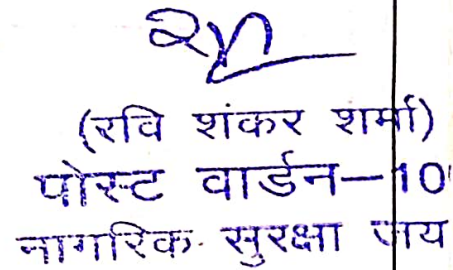 (रवि शंकर शर्मा)
पोस्ट वार्डन–10
नागरिक सुरक्षा जय